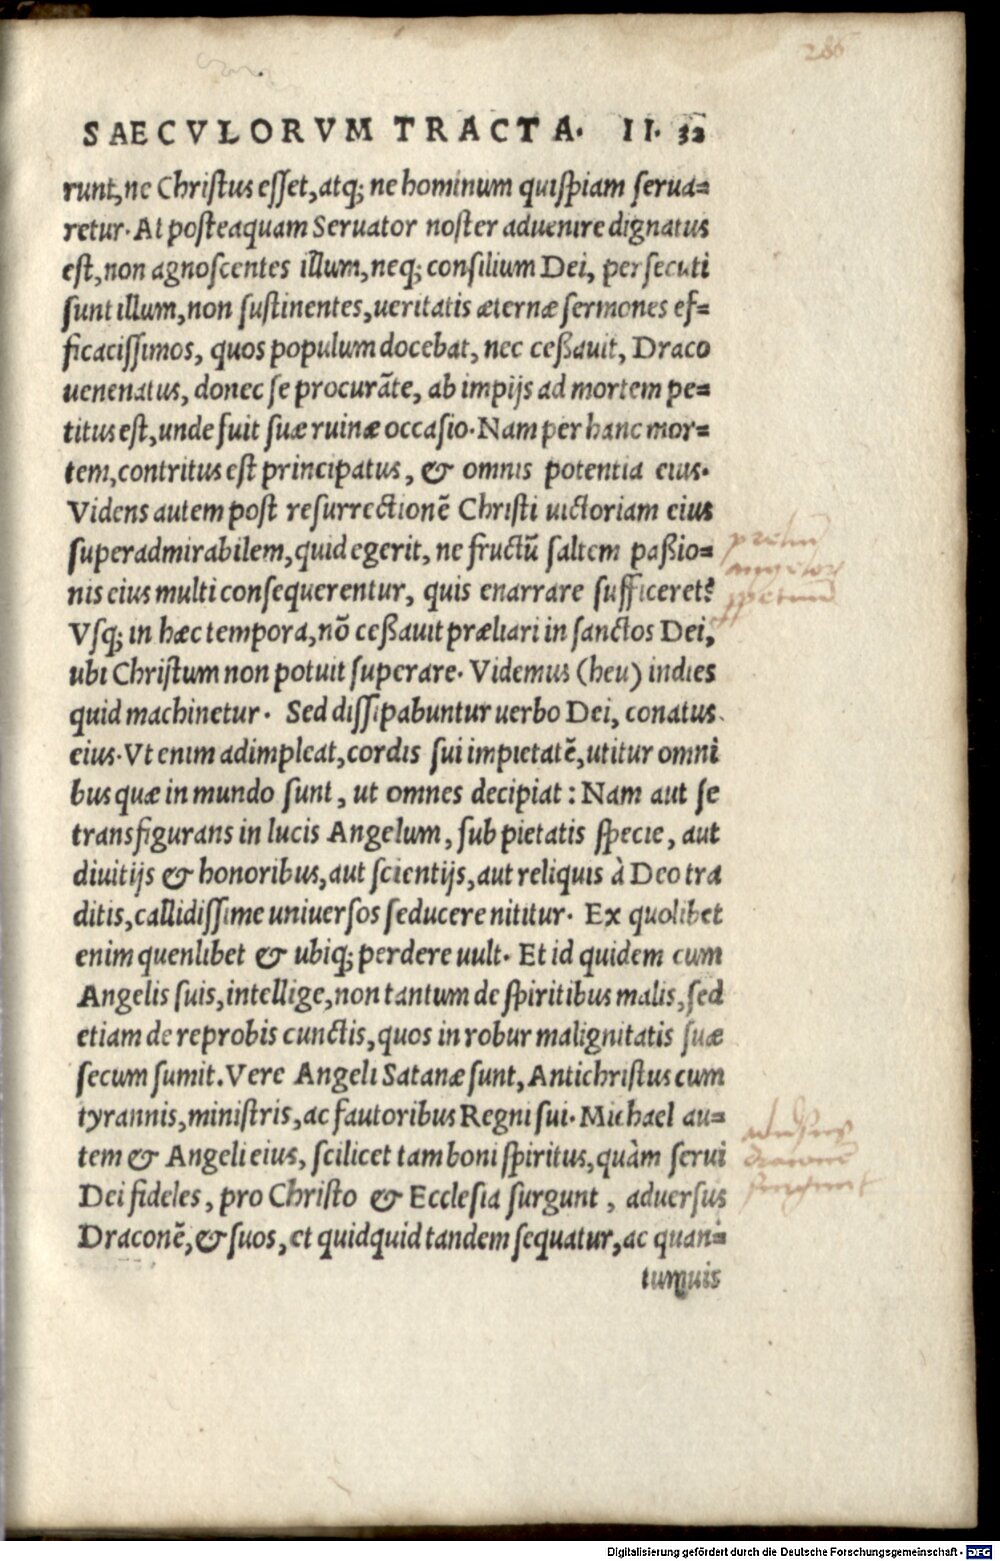 286
SAECVLORVM TRACTA. II. 32
runt, ne Christus esset, atq; ne hominum quispiam serua=
retur. At posteaquam Seruator noster aduenire dignatus
est, non agnoscentes illum, neq; consilium Dei, persecuti
sunt illum, non sustinentes, ueritatis æternæ sermones ef=
ficacissimos, quos populum docebat, nec ceßauit, Draco
uenenatus, donec se procurãte, ab impijs ad mortem pe=
titus est, unde fuit suæ ruinæ occasio. Nam per hanc mor=
tem, contritus est principatus, & omnis potentia eius.
Videns autem post resurrectionẽ Christi uictoriam eius
superadmirabilem, quid egerit, ne fructũ saltem paßio=
nis eius multi consequerentur, quis enarrare sufficeret?
Vsq; in hæc tempora, nõ ceßauit præliari in sanctos Dei,
ubi Christum non potuit superare. Videmus (heu) indies
quid machinetur. Sed dissipabuntur uerbo Dei, conatus
eius. Vt enim adimpleat, cordis sui impietatẽ, utitur omni
bus quæ in mundo sunt, ut omnes decipiat: Nam aut se
transfigurans in lucis Angelum, sub pietatis specie, aut
diuitijs & honoribus, aut scientijs, aut reliquis à Deo tra
ditis, callidissime uniuersos seducere nititur. Ex quolibet
enim quenlibet & ubiq; perdere uult. Et id quidem cum
Angelis suis, intellige, non tantum de spiritibus malis, sed
etiam de reprobis cunctis, quos in robur malignitatis suæ
secum sumit. Vere Angeli Satanæ sunt, Antichristus cum
tyrannis, ministris, ac fautoribus Regni sui. Michael au=
tem & Angeli eius, scilicet tam boni spiritus, quàm serui
Dei fideles, pro Christo & Ecclesia surgunt, aduersus
Draconẽ, & suos, et quidquid tandem sequatur, ac quan=
tumuis
Digitalisierung gefördert durch die Deutsche Forschungsgemeinschaft - DFG